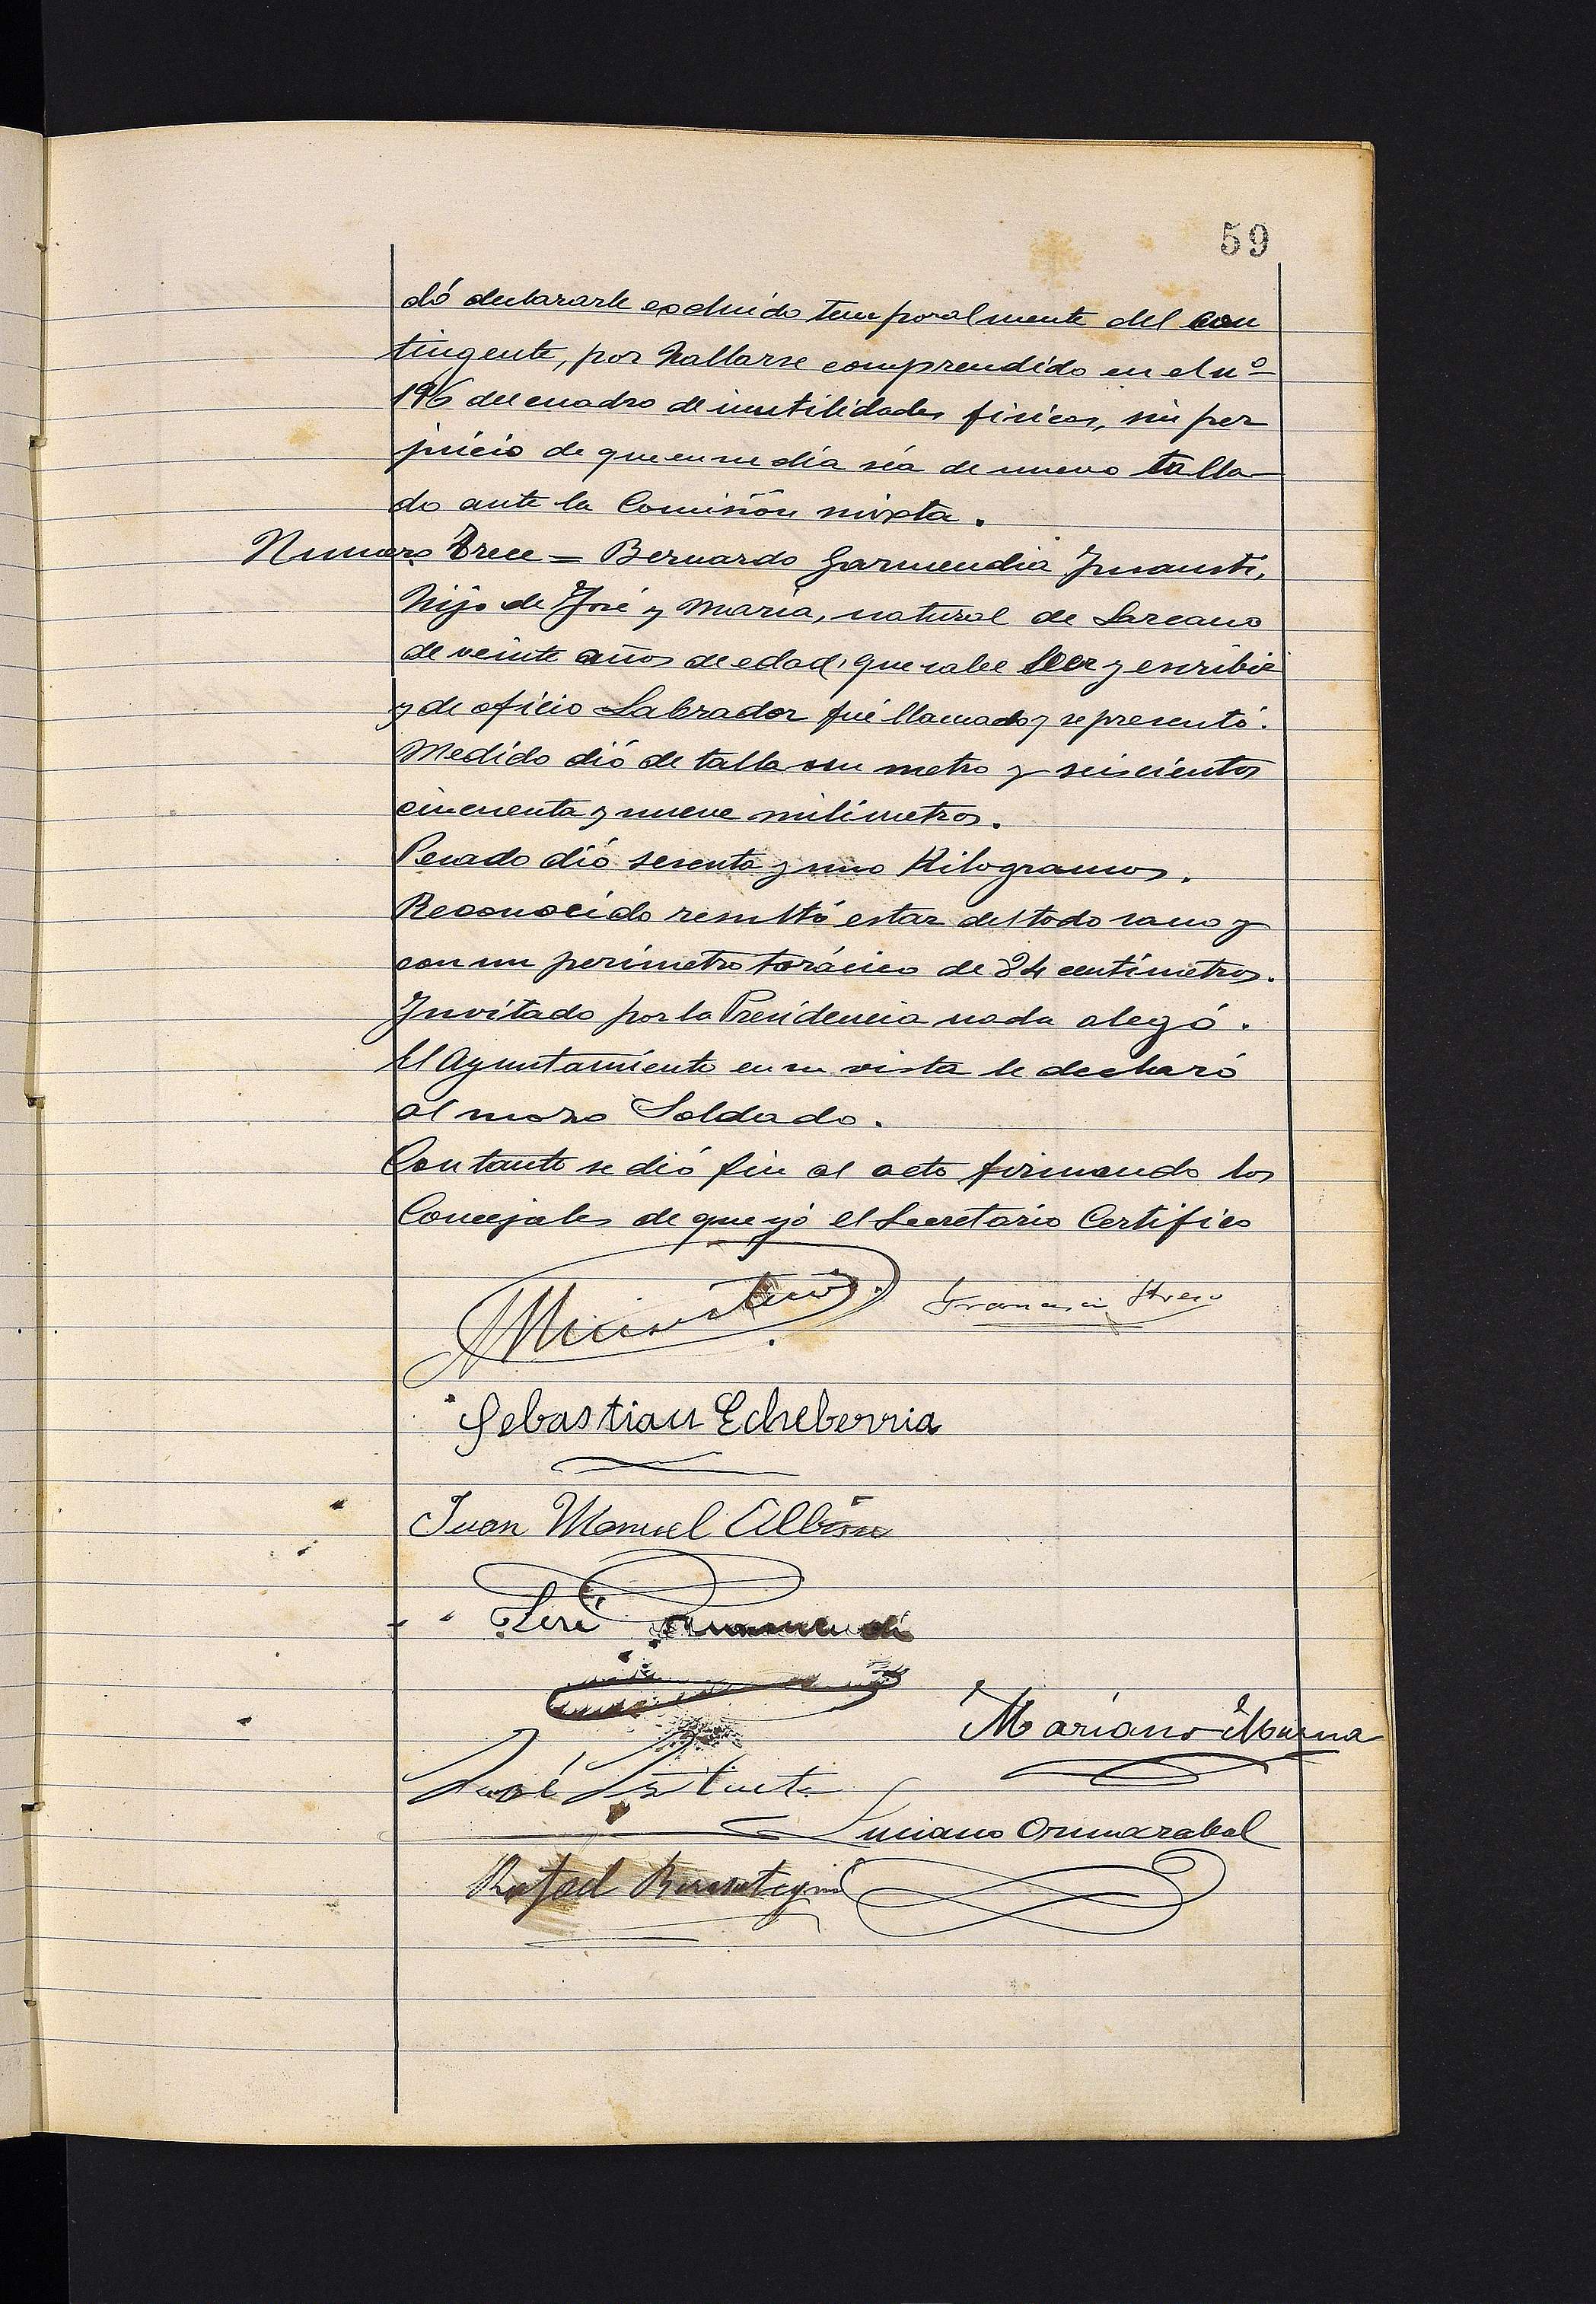 59
dó declararle excluido temporalmente del con
tingente, por hallarse comprendido en el nº
196 del cuadro de inutilidades fisicas, sin per
juicio de que en su día sea de nuevo talla-
do ante la Comisión mixta.
Numero Trece = Bernardo Garmendia Insausti,
hijo de José y Maria, natural de Lazcano
de veinte años de edad, que sabe leer y escribir
y de oficio Labrador fué llamado y se presentó.
Medido dió de talla un metro y seiscientos
cincuenta y nueve milimetros.
Pesado dió sesenta y uno Kilogramos.
Reconocido resultó estar del todo sano y
con un perimetro torácico de 84 centimetros.
Invitado por la Presidencia nada alegó.
El Ayuntamiento en su vista le declaró
al mozo Soldado.
Con tanto se dió fin al acto firmando los
Concejales de que yó el Secretario Certifico
Sebastian Echeberria
Juan Manuel
José
Mariano
José
Luciano
Rafael